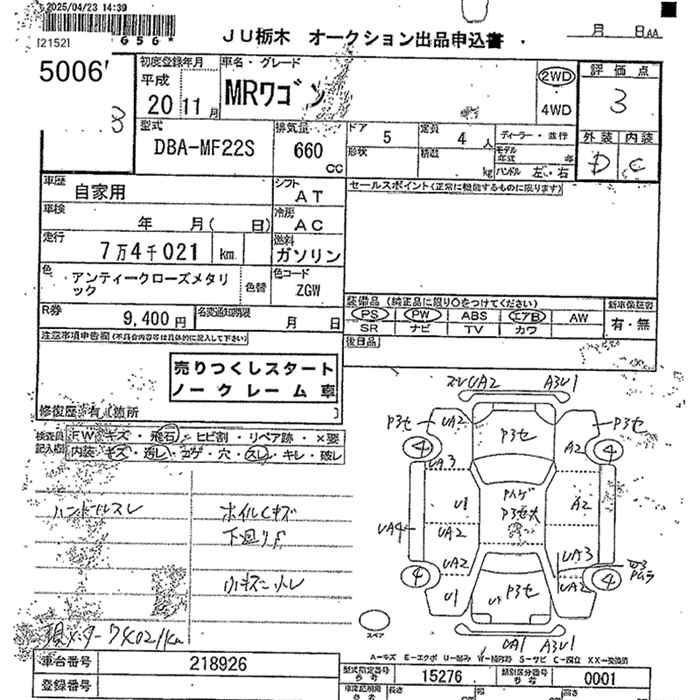 2025/04/23 14:39
[2152]
JU栃木 オークション出品申込書
月 日AA
5006
初度登録年月
平成
20 11月
車名・グレード
MRワゴン
2WD
4WD
評価点
3
外装 内装
D C
型式
DBA-MF22S
排気量
660
CC
ドア 5
定員 4人
ディーラー・並行
形状
積載
kg
モデル年式 年
ハンドル 左・右
車歴
自家用
シフト
AT
セールスポイント(正常に機能するものに限ります)
車検
年 月( 日)
冷房
AC
走行
7万4千021 km
燃料
ガソリン
色
アンティークローズメタリック
色替
色コード
ZGW
装備品(純正品に限り○をつけてください)
PS PW ABS エアB AW
SR ナビ TV カワ
新車保証書
有・無
R券
9,400円
名変通知期限
月 日
後日品
注意事項申告欄(不具合内容等は具体的に記入して下さい)
売りつくしスタート
ノークレーム車
修復歴 有( 箇所 )
検査員記入欄
FW キズ・飛石・ヒビ割・リペア跡・×要
内装・キズ・汚レ・コゲ・穴・スレ・キレ・破レ
ハンドルスレ
ホイルCキズ
下廻りF
小キズ 小レ
UA2 A3U1
P3セ UA2 P3セ A2 P3セ
4 4
UA3
U1 A2
P3セ大
UA4 UA2
UA2 UA3
4 P3セ 4
U1 UA2
UA1 A3U1
スペア
A-キズ E-エクボ U-凹み W-補修跡 S-サビ C-腐食 XX-交換済
車台番号 218926
登録番号
型式指定番号 参考 15276
類別区分番号 参考 0001
車庫証明用 参考 長さ 幅 高さ